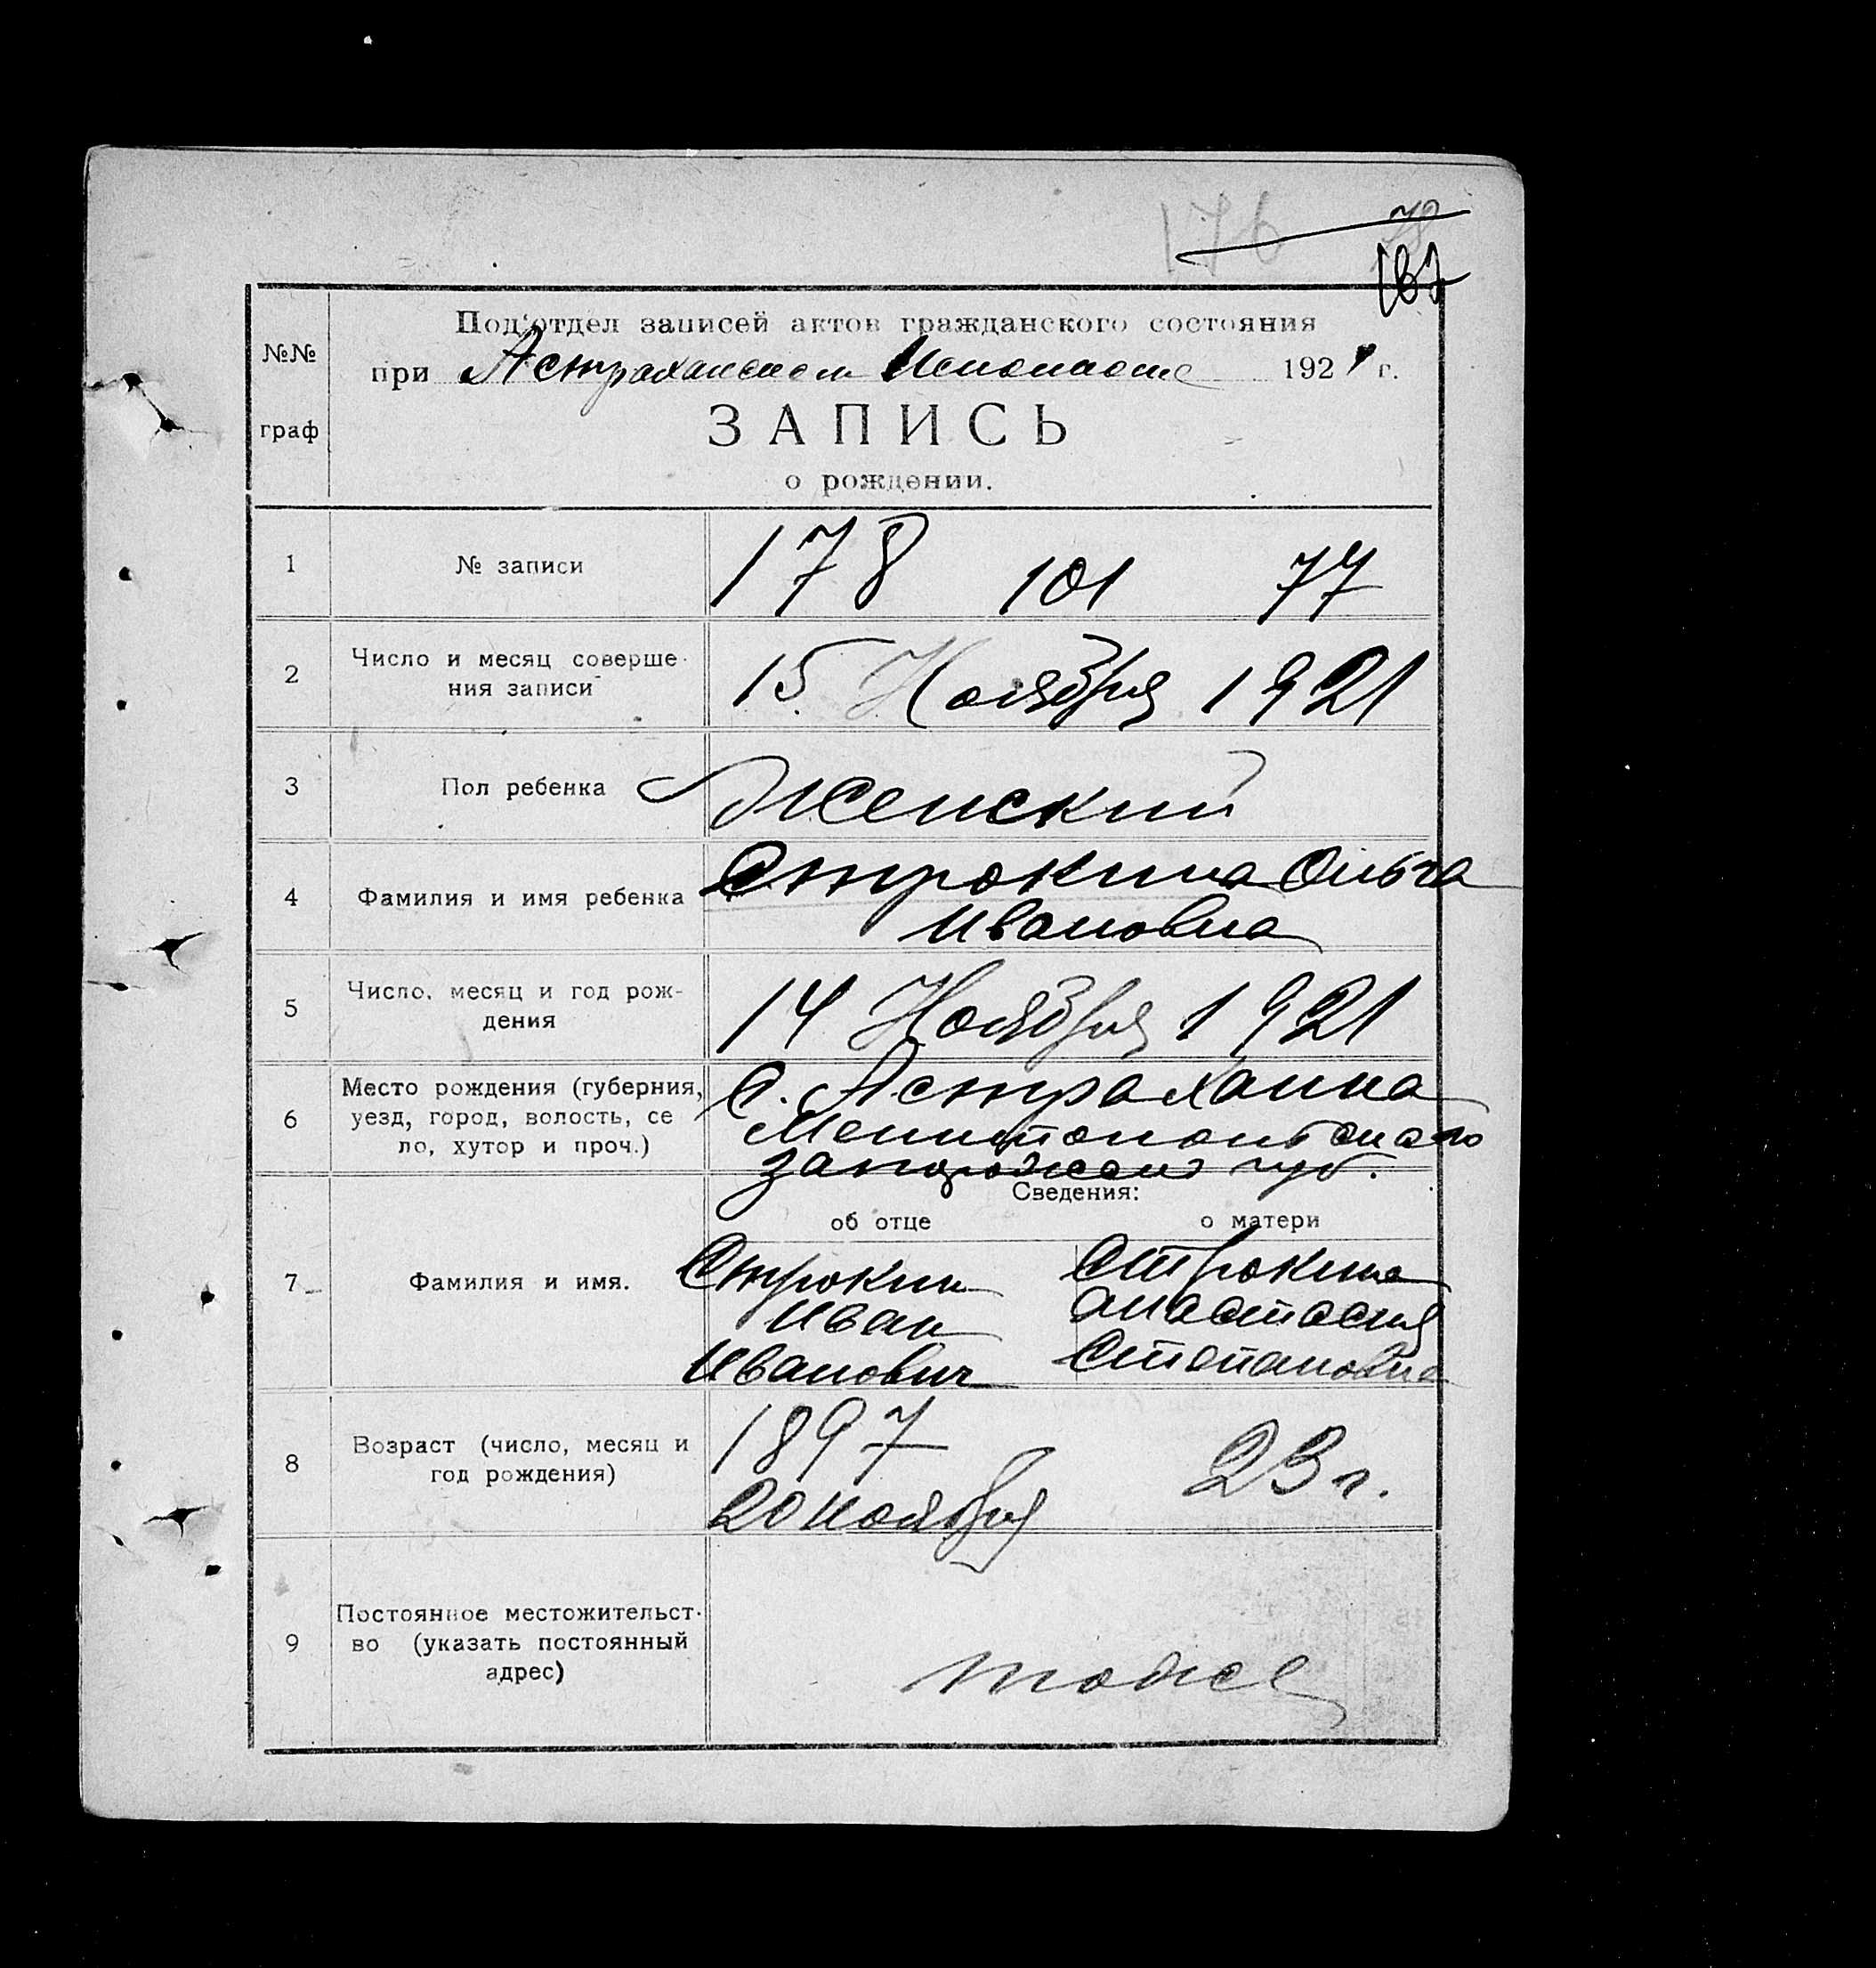 176 78
167
№№
граф
Под'отдел записей актов гражданского состояния
при Астраханском Исполкоме 1921 г.
ЗАПИСЬ
о рождении.
1 № записи 178 101 77
2 Число и месяц соверше-
ния записи 15. Ноября 1921
3 Пол ребенка Женский
4 Фамилия и имя ребенка Строкина Ольга
Ивановна
5 Число, месяц и год рож-
дения 14 Ноября 1921
6 Место рождения (губерния, С. Астраханка
уезд, город, волость, се Мелитопольскаго
ло, хутор и проч.) Запорожской губ.
Сведения:
об отце о матери
7 Фамилия и имя. Строкин Строкина
Иван Анастасия
Иванович Степановна
8 Возраст (число, месяц и 1897 23 г.
год рождения) 20 ноября
9 Постоянное местожительст-
во (указать постоянный
адрес) тоже